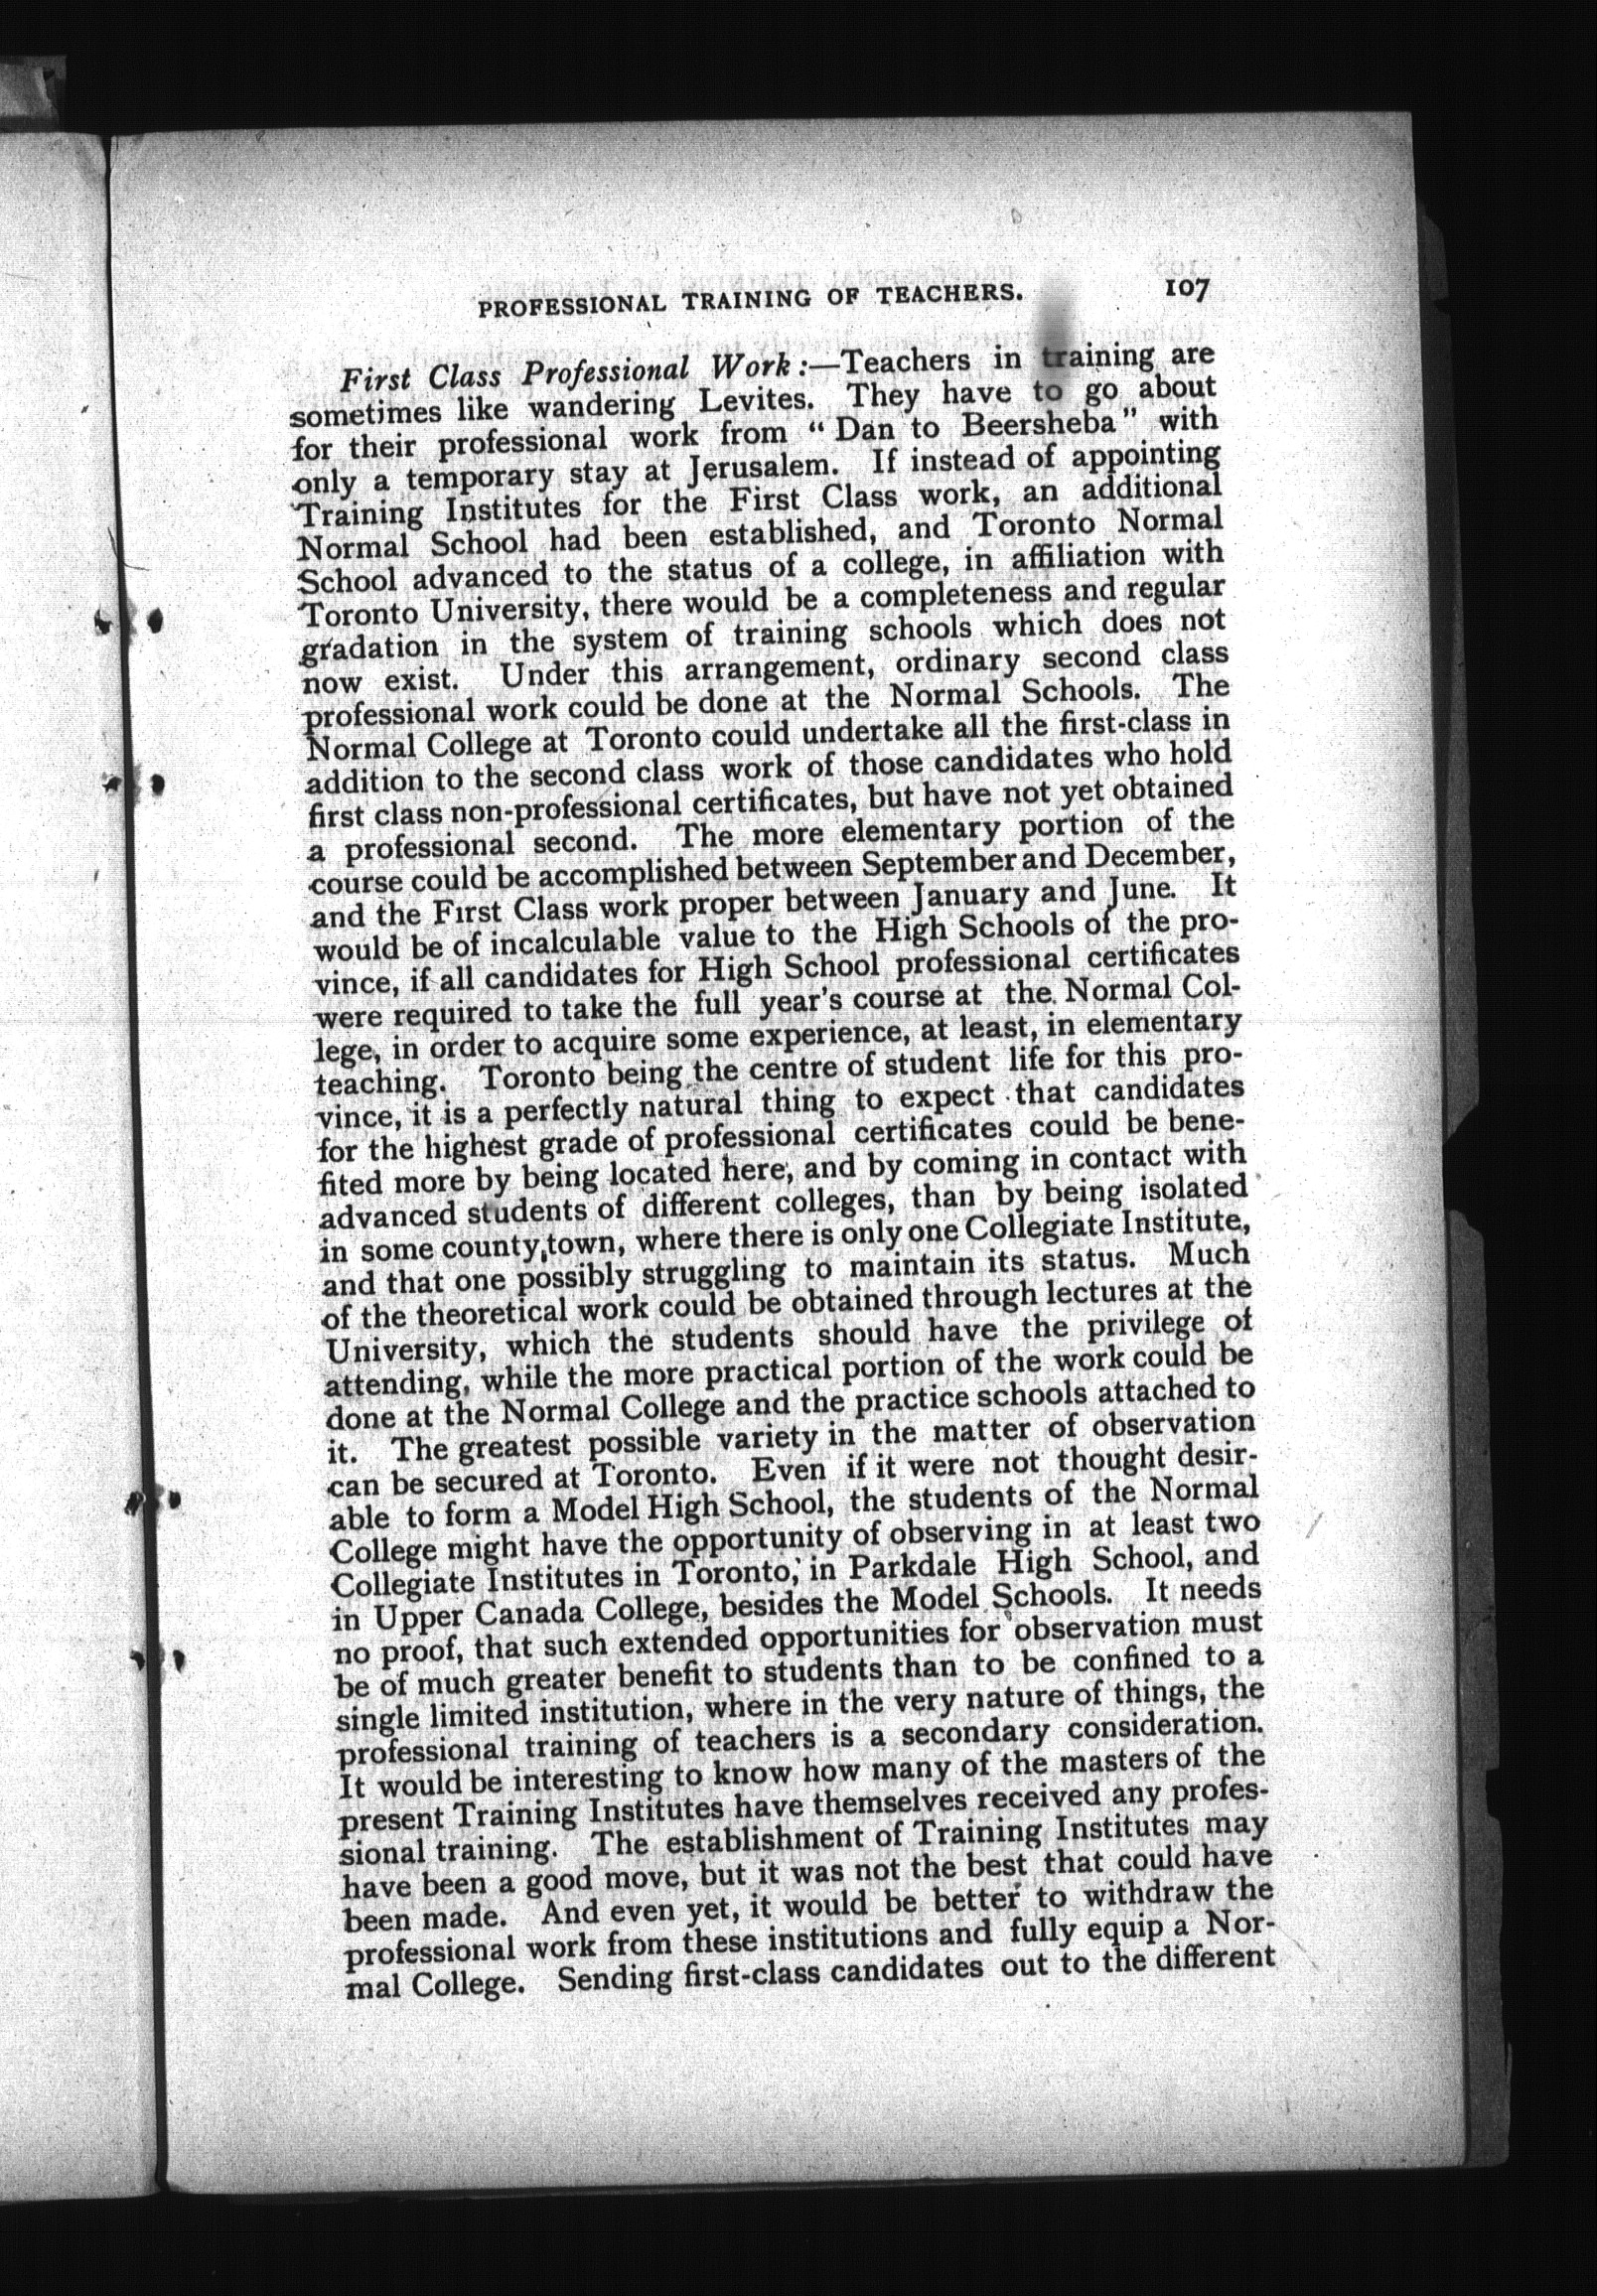 PROFESSIONAL TRAINING OF TEACHERS. 107
First Class Professional Work:—Teachers in training are
sometimes like wandering Levites. They have to go about
for their professional work from “Dan to Beersheba” with
only a temporary stay at Jerusalem. If instead of appointing
Training Institutes for the First Class work, an additional
Normal School had been established, and Toronto Normal
School advanced to the status of a college, in affiliation with
Toronto University, there would be a completeness and regular
gradation in the system of training schools which does not
now exist. Under this arrangement, ordinary second class
professional work could be done at the Normal Schools. The
Normal College at Toronto could undertake all the first-class in
addition to the second class work of those candidates who hold
first class non-professional certificates, but have not yet obtained
a professional second. The more elementary portion of the
course could be accomplished between September and December,
and the First Class work proper between January and June. It
would be of incalculable value to the High Schools of the pro-
vince, if all candidates for High School professional certificates
were required to take the full year's course at the Normal Col-
lege, in order to acquire some experience, at least, in elementary
teaching. Toronto being the centre of student life for this pro-
vince, it is a perfectly natural thing to expect that candidates
for the highest grade of professional certificates could be bene-
fited more by being located here, and by coming in contact with
advanced students of different colleges, than by being isolated
in some county town, where there is only one Collegiate Institute,
and that one possibly struggling to maintain its status. Much
of the theoretical work could be obtained through lectures at the
University, which the students should have the privilege of
attending, while the more practical portion of the work could be
done at the Normal College and the practice schools attached to
it. The greatest possible variety in the matter of observation
can be secured at Toronto. Even if it were not thought desir-
able to form a Model High School, the students of the Normal
College might have the opportunity of observing in at least two
Collegiate Institutes in Toronto, in Parkdale High School, and
in Upper Canada College, besides the Model Schools. It needs
no proof, that such extended opportunities for observation must
be of much greater benefit to students than to be confined to a
single limited institution, where in the very nature of things, the
professional training of teachers is a secondary consideration.
It would be interesting to know how many of the masters of the
present Training Institutes have themselves received any profes-
sional training. The establishment of Training Institutes may
have been a good move, but it was not the best that could have
been made. And even yet, it would be better to withdraw the
professional work from these institutions and fully equip a Nor-
mal College. Sending first-class candidates out to the different